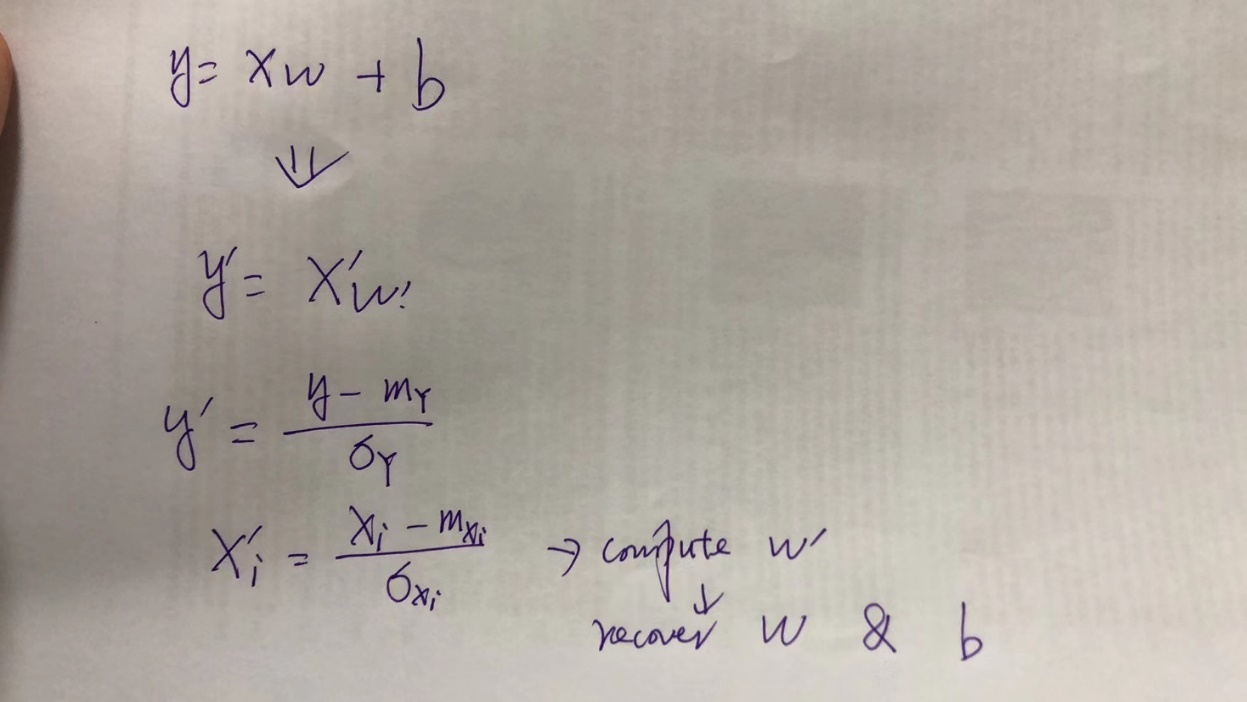 y = Xw + b
⇓
y' = X'w'
y' = (y - m_Y) / σ_Y
X'_i = (X_i - m_{X_i}) / σ_{X_i} → compute w'
↓
recover w & b